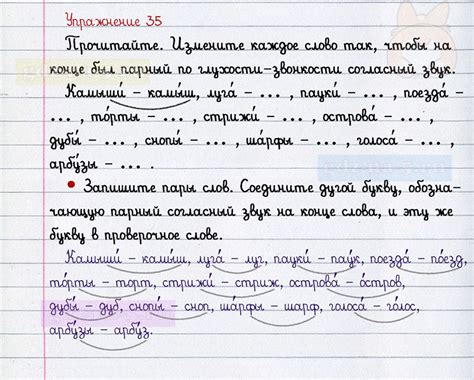 Упражнение 35
Прочитайте. Измените каждое слово так, чтобы на
конце был парный по глухости-звонкости согласный звук.
Камыши́ – камы́ш, луга́ – ... , пауки́ – ... , поезда́ –
... , то́рты – ... , стрижи́ – ... , острова́ – ... ,
дубы́ – ... , снопы́ – ... , ша́рфы – ... , голоса́ – ... ,
арбу́зы – ... .
• Запишите пары слов. Соедините дугой букву, обозна-
чающую парный согласный звук на конце слова, и эту же
букву в проверочное слове.
Камыши́ – камы́ш, луга́ – луг, пауки́ – пау́к, поезда́ – по́езд,
то́рты – торт, стрижи́ – стриж, острова́ – о́стров,
дубы́ – дуб, снопы́ – сноп, ша́рфы – шарф, голоса́ – го́лос,
арбу́зы – арбу́з.